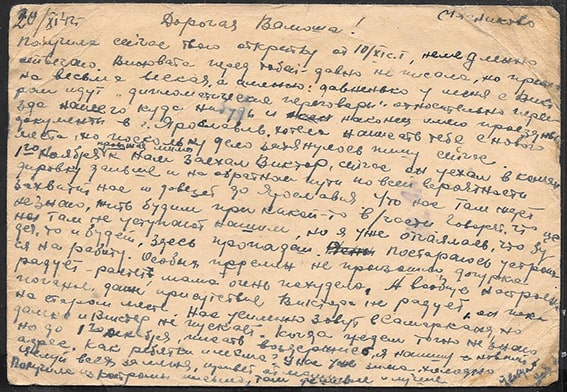 20/XI 42г. Мясниково
Дорогая Вамоша!
Получила сейчас твою открытку от 10/XI с.г., немедленно
отвечаю. Виновата перед тобой давно не писала, но причи-
на весьма веская, а именно: давненько у меня с Викто-
ром идут "дипломатические переговоры" относительно переез-
да нашего куда и наконец имею проездные
документы в г. Ярославль, хотела написать тебе с нового
места, но поскольку дело затянулось пишу сейчас.
ноября к нам заехал Виктор, сейчас он уехал в коман-
дировку дальше и на обратном пути по всей вероятности
захватит нас и довезет до Ярославля. Что нас там ждет
не знаю, жить будем при какой-то в/части. Говорят, что це-
ны там не уступают нашим, но я уже отчаялась, что бу-
дет, то и будет, здесь пропадем. Постараюсь устроить-
ся на работу. Особых перемен не произошло, дочурка
радует - растет, мама очень похудела. А вообще настроение
поганое, даже присутствие Виктора не радует, он пока
на старом месте. Нас усиленно зовут в Самарканд, но
далеко и Виктор не пускает. Когда уедем точно не знаю,
но до 1 декабря, писать воздержись, я напишу с новый
адрес. Как ребятки и мама? У нас уже зима, холодно.
Целую всех за меня, привет от мамы
Получила из Костромы письмо, там